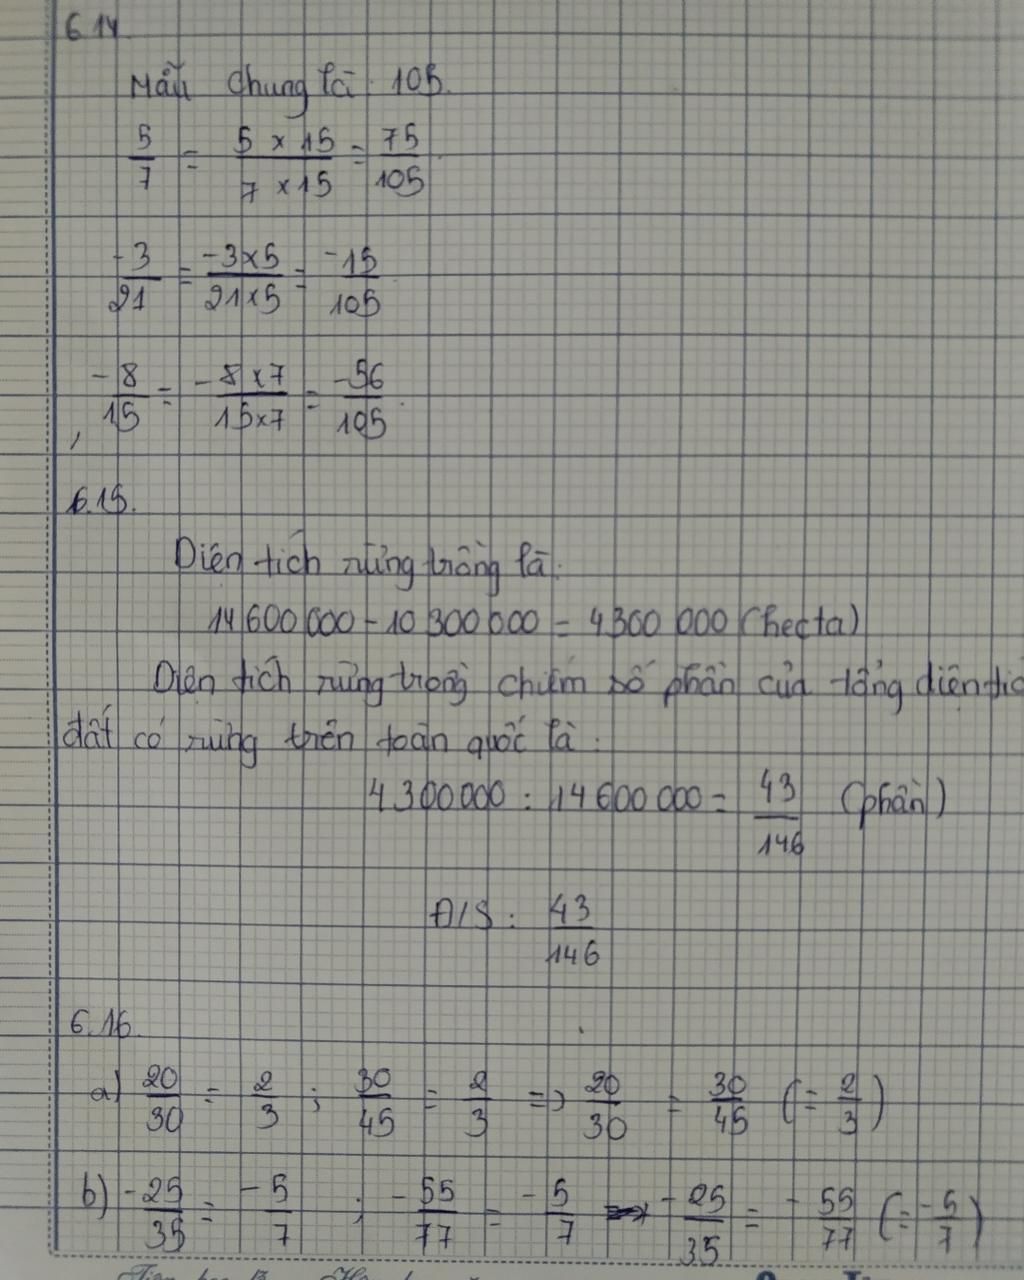 6.14
Mẫu chung là 105.
5/7 = (5 × 15)/(7 × 15) = 75/105
-3/21 = (-3×5)/(21×5) = -15/105
-8/15 = (-8×7)/(15×7) = -56/105
6.15.
Diện tích rừng trồng là:
14 600 000 - 10 300 000 = 4 300 000 (hecta)
Diện tích rừng trồng chiếm số phần của tổng diện tíc
đất có rừng trên toàn quốc là:
4 300 000 : 14 600 000 = 43/146 (phần)
Đ/S: 43/146
6.16.
a) 20/30 = 2/3 ; 30/45 = 2/3 => 20/30 = 30/45 (= 2/3)
b) -25/35 = -5/7 ; -55/77 = -5/7 => -25/35 = -55/77 (= -5/7)